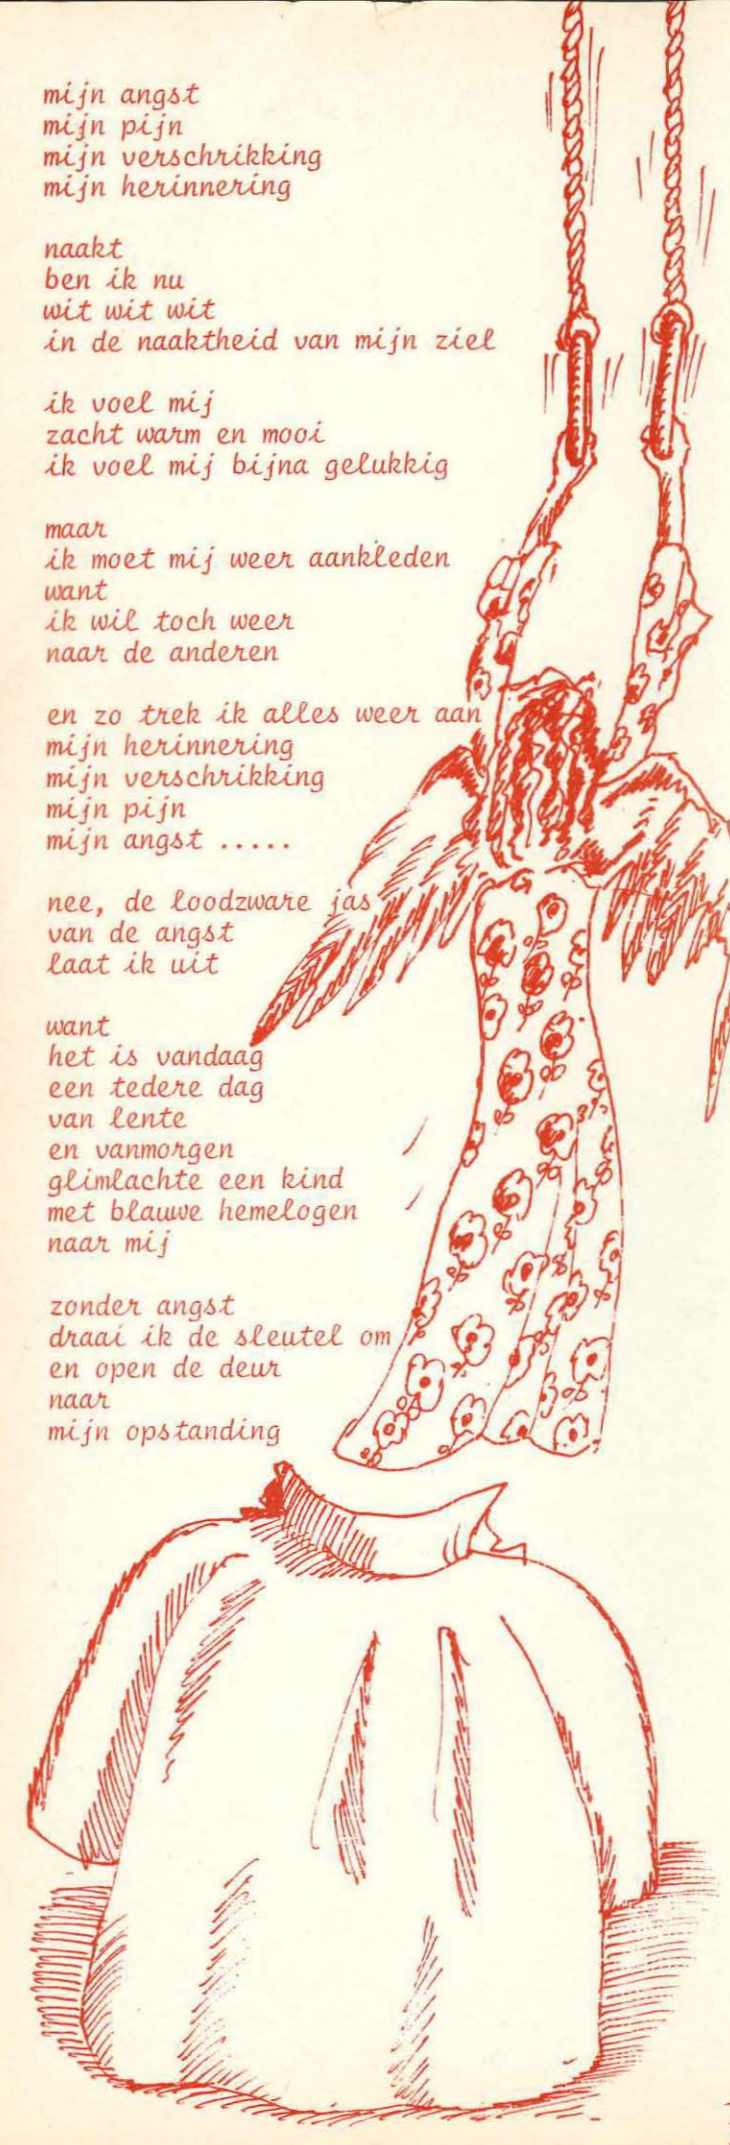 mijn angst
mijn pijn
mijn verschrikking
mijn herinnering

naakt
ben ik nu
wit wit wit
in de naaktheid van mijn ziel

ik voel mij
zacht warm en mooi
ik voel mij bijna gelukkig

maar
ik moet mij weer aankleden
want
ik wil toch weer
naar de anderen

en zo trek ik alles weer aan
mijn herinnering
mijn verschrikking
mijn pijn
mijn angst .....

nee, de loodzware jas
van de angst
laat ik uit

want
het is vandaag
een tedere dag
van lente
en vanmorgen
glimlachte een kind
met blauwe hemelogen
naar mij

zonder angst
draai ik de sleutel om
en open de deur
naar
mijn opstanding